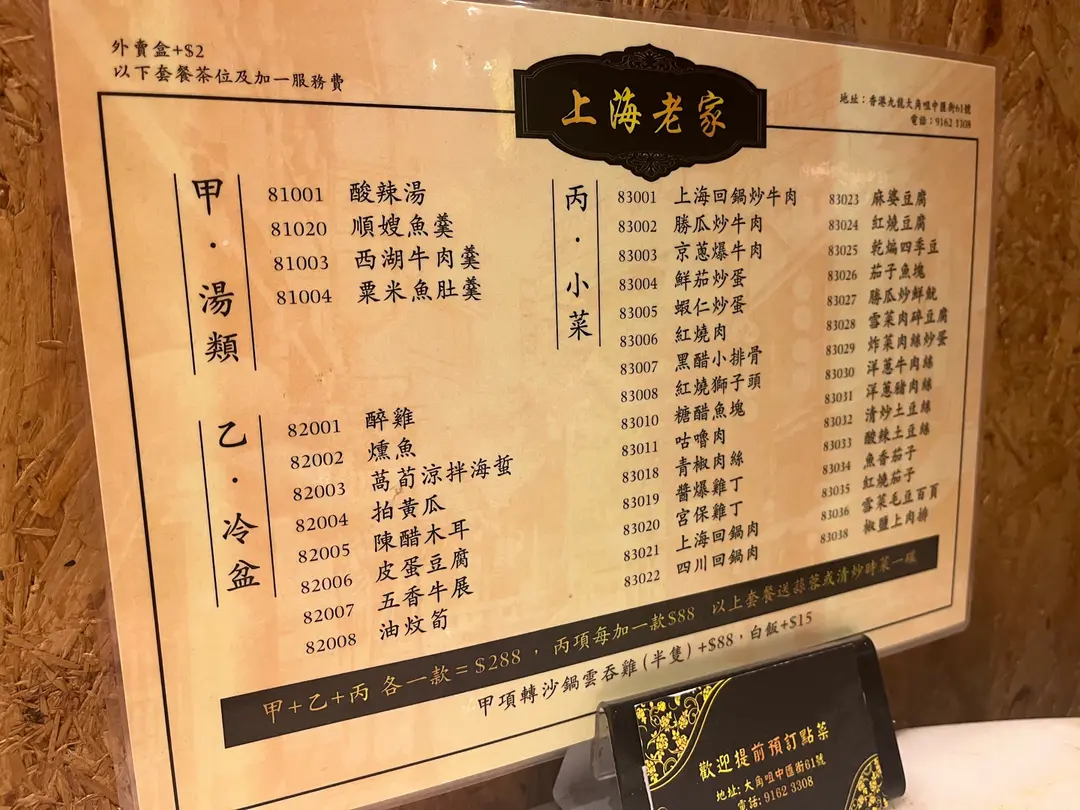 外賣盒+$2
以下套餐茶位及加一服務費
上海老家
地址：香港九龍大角咀中匯街61號
電話：9162 3308
甲・湯類
81001 酸辣湯
81020 順嫂魚羹
81003 西湖牛肉羹
81004 粟米魚肚羹
乙・冷盆
82001 醉雞
82002 燻魚
82003 萵荀涼拌海蜇
82004 拍黃瓜
82005 陳醋木耳
82006 皮蛋豆腐
82007 五香牛展
82008 油炆筍
丙・小菜
83001 上海回鍋炒牛肉
83002 勝瓜炒牛肉
83003 京蔥爆牛肉
83004 鮮茄炒蛋
83005 蝦仁炒蛋
83006 紅燒肉
83007 黑醋小排骨
83008 紅燒獅子頭
83010 糖醋魚塊
83011 咕嚕肉
83018 青椒肉絲
83019 醬爆雞丁
83020 宮保雞丁
83021 上海回鍋肉
83022 四川回鍋肉
83023 麻婆豆腐
83024 紅燒豆腐
83025 乾煸四季豆
83026 茄子魚塊
83027 勝瓜炒鮮魷
83028 雪菜肉碎豆腐
83029 炸菜肉絲炒蛋
83030 洋蔥牛肉絲
83031 洋蔥豬肉絲
83032 清炒土豆絲
83033 酸辣土豆絲
83034 魚香茄子
83035 紅燒茄子
83036 雪菜毛豆百頁
83038 椒鹽上肉排
甲+乙+丙 各一款=$288，丙項每加一款$88 以上套餐送蒜蓉或清炒時菜一碟
甲項轉沙鍋雲吞雞(半隻)+$88，白飯+$15
歡迎提前預訂點菜
地址: 大角咀中匯街61號
電話: 9162 3308